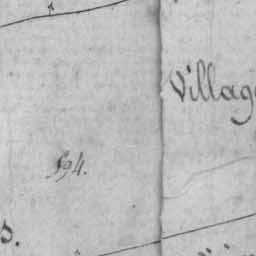 Villag
594.
s.